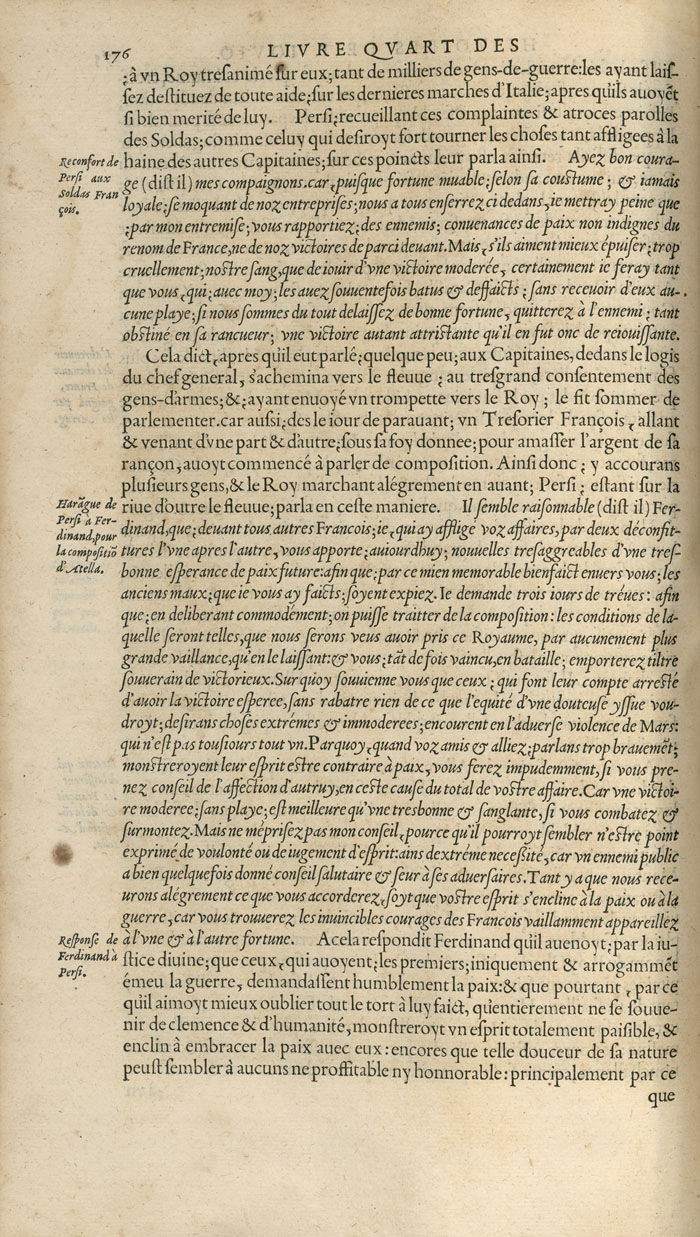 176
LIVRE QVART DES
;à vn Roy tresanimé sur eux; tant de milliers de gens-de-guerre: les ayant lais-
sez destituez de toute aide; sur les dernieres marches d'Italie; apres qu'ils auoyẽt
si bien merité de luy. Persi; recueillant ces complaintes & atroces parolles
des Soldas; comme celuy qui desiroyt fort tourner les choses tant affligees à la
haine des autres Capitaines; sur ces poincts leur parla ainsi. Ayez bon coura-
Reconfort de
Persi aux
Soldas Fran
çois.
ge (dist il) mes compaignons. car, puisque fortune muable; selon sa coustume; & iamais
loyale; se moquant de noz entreprises; nous a tous enserrez ci dedans, ie mettray peine que
; par mon entremise; vous rapportiez; des ennemis; conuenances de paix non indignes du
renom de France, ne de noz victoires de par ci deuant. Mais, s'ils aiment mieux épuiser; trop
cruellement; nostre sang, que de iouir d'vne victoire moderée, certainement ie feray tant
que vous, qui; auec moy; les auez souuentefois batus & deffaicts; sans receuoir d'eux au-
cune playe; si nous sommes du tout delaissez de bonne fortune, quitterez à l'ennemi; tant
obstiné en sa rancueur; vne victoire autant attristante qu'il en fut onc de reiouissante.
Cela dict, apres qu'il eut parlé; quelque peu; aux Capitaines, dedans le logis
du chef general, s'achemina vers le fleuue; au tresgrand consentement des
gens-d'armes; &; ayant enuoyé vn trompette vers le Roy; le fit sommer de
parlementer. car aussi; des le iour de parauant; vn Tresorier François, allant
& venant d'vne part & d'autre; sous sa foy donnee; pour amasser l'argent de sa
rançon, auoyt commencé à parler de composition. Ainsi donc; y accourans
plusieurs gens, & le Roy marchant alégrement en auant; Persi; estant sur la
riue d'outre le fleuue; parla en ceste maniere. Il semble raisonnable (dist il) Fer-
Harãgue de
Persi à Fer-
dinand, pour
la compositiõ
d'Atella.
dinand, que; deuant tous autres Francois; ie, qui ay affligé voz affaires, par deux déconfit-
tures l'vne apres l'autre, vous apporte; auiourdhuy; nouuelles tresaggreables d'vne tres-
bonne esperance de paix future: afin que; par ce mien memorable bienfaict enuers vous; les
anciens maux; que ie vous ay faicts; soyent expiez. Ie demande trois iours de tréues: afin
que; en deliberant commodémẽt; on puisse traitter de la composition: les conditions de la-
quelle seront telles, que nous serons veus auoir pris ce Royaume, par aucunement plus
grande vaillance, qu'en le laissant: & vous; tãt de fois vaincu, en bataille; emporterez tiltre
souuerain de victorieux. Sur quoy souuienne vous que ceux; qui font leur compte arresté
d'auoir la victoire esperee, sans rabatre rien de ce que l'equité d'vne douteuse yssue vou-
droyt; desirans choses extrémes & immoderees; encourent en l'aduerse violence de Mars:
qui n'est pas tousiours tout vn. Parquoy, quand voz amis & alliez; parlans trop brauemẽt;
monstreroyent leur esprit estre contraire à paix, vous ferez impudemment, si vous pre-
nez conseil de l'affection d'autruy, en ceste cause du total de vostre affaire. Car vne victoi-
re moderee; sans playe; est meilleure qu'vne tresbonne & sanglante, si vous combatez &
surmontez. Mais ne méprisez pas mon conseil, pource qu'il pourroyt sembler n'estre point
exprimé de voulonté ou de iugement d'esprit: ains d'extréme necessité, car vn ennemi public
a bien quelquefois donné conseil salutaire & seur à ses aduersaires. Tant y a que nous rece-
urons alégrement ce que vous accorderez, soyt que vostre esprit s'encline à la paix ou à la
guerre, car vous trouuerez les inuincibles courages des Francois vaillamment appareillez
à l'vne & à l'autre fortune. A cela respondit Ferdinand qu'il auenoyt; par la iu-
Response de
Ferdinand à
Persi.
stice diuine; que ceux, qui auoyent; les premiers; iniquement & arrogammẽt
émeu la guerre, demandassent humblement la paix: & que pourtant, parce
qu'il aimoyt mieux oublier tout le tort à luy faict, qu'entierement ne se souue-
nir de clemence & d'humanité, monstreroyt vn esprit totalement paisible, &
enclin à embracer la paix auec eux: encores que telle douceur de sa nature
peust sembler à aucuns ne proffitable ny honnorable: principalement par ce
que